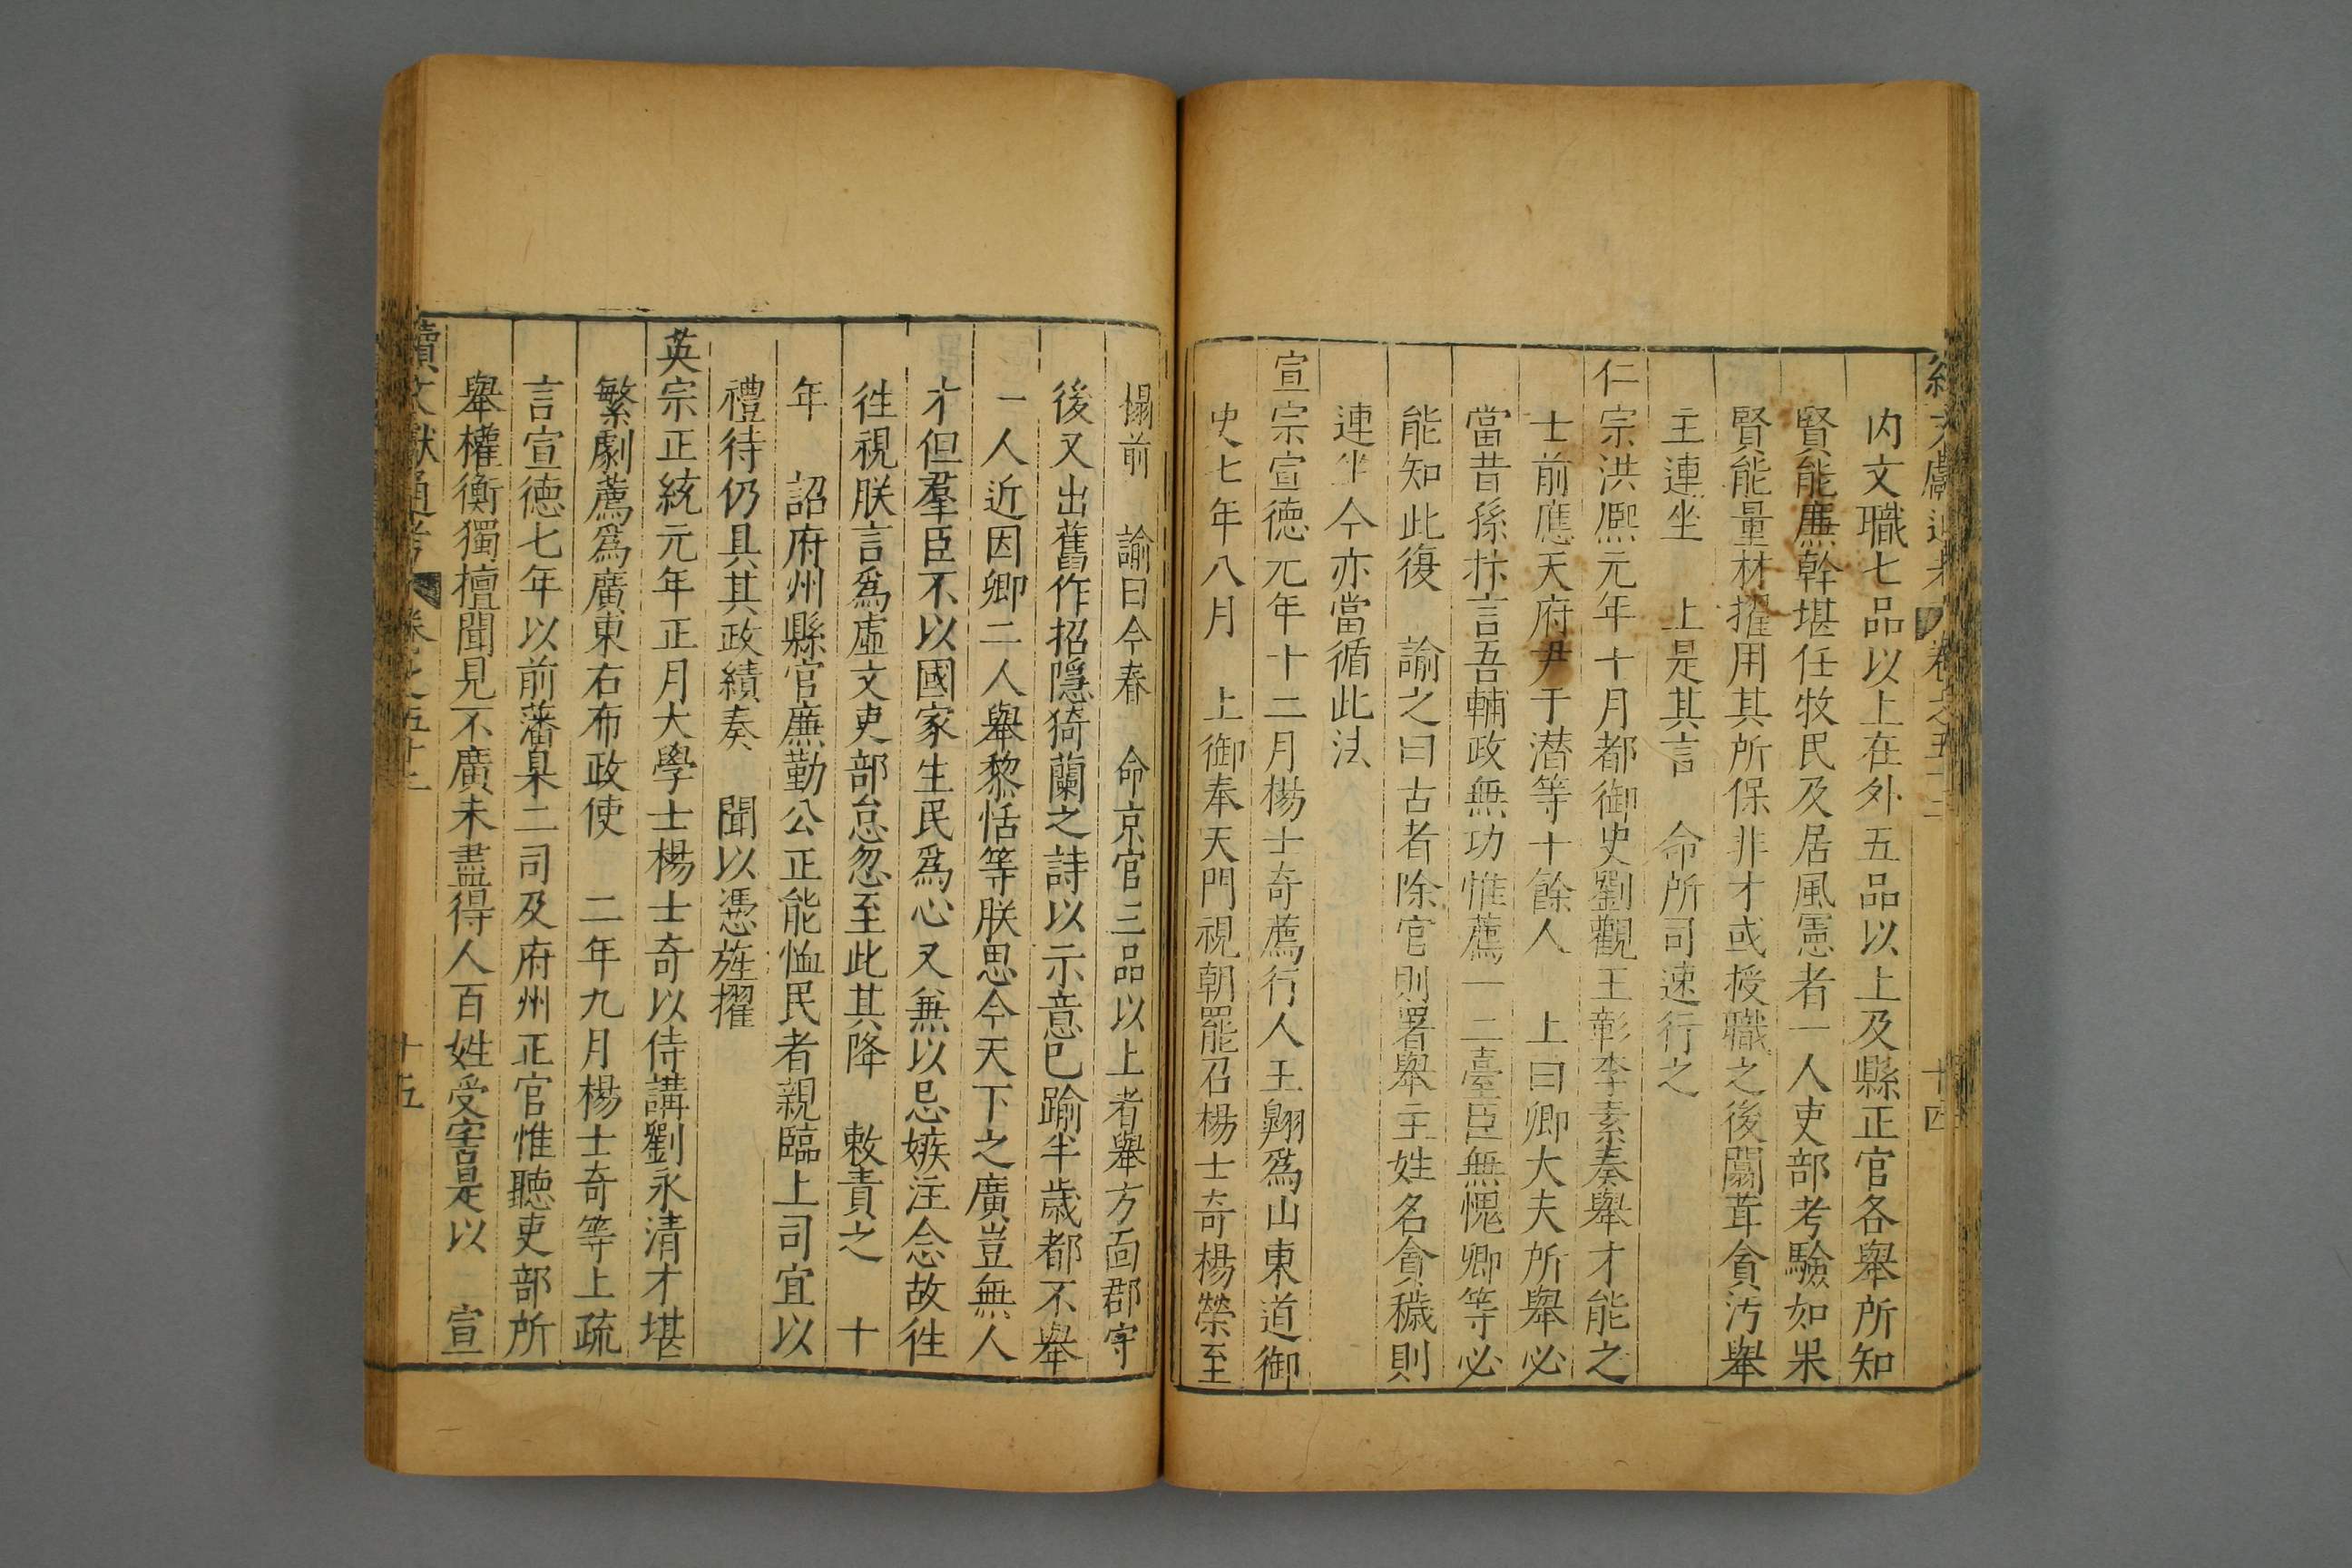 内文職七品以上在外五品以上及縣正官各舉所知
賢能廉幹堪任牧民及居風憲者一人吏部考驗如果
賢能量材擢用其所保非才或授職之後闒茸貪汚舉
主連坐　上是其言　命所司速行之
仁宗洪熈元年十月都御史劉觀王彰李素奏舉才能之
士前應天府尹于潜等十餘人　上曰卿大夫所舉必
當昔孫抃言吾輔政無功惟薦一二臺臣無愧卿等必
能知此復　諭之曰古者除官則署舉主姓名貪穢則
連坐今亦當循此法
宣宗宣德元年十二月楊士奇薦行人王翱爲山東道御
史七年八月　上御奉天門視朝罷召楊士奇楊榮至
榻前　諭曰今春　命京官三品以上者舉方面郡守
後又出舊作招隱猗蘭之詩以示意已踰半歲都不舉
一人近因卿二人舉黎恬等朕思今天下之廣豈無人
才但羣臣不以國家生民爲心又無以忌嫉注念故徃
徃視朕言爲虛文吏部怠忽至此其降　敕責之　十
年　詔府州縣官廉勤公正能恤民者親臨上司宜以
禮待仍具其政績奏　聞以憑旌擢
英宗正統元年正月大學士楊士奇以侍講劉永清才堪
繁劇薦爲廣東右布政使　二年九月楊士奇等上疏
言宣德七年以前藩臬二司及府州正官惟聽吏部所
舉權衡獨擅聞見不廣未盡得人百姓受害是以　宣
續文獻通考　卷之五十　十五